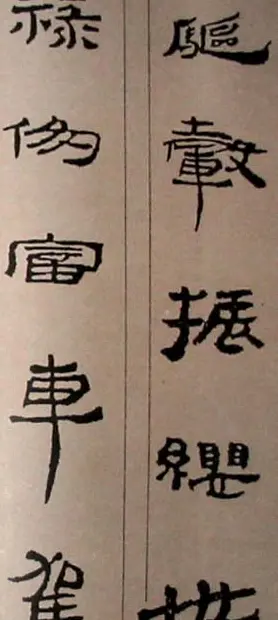 驅轂振纓世
祿侈富車駕